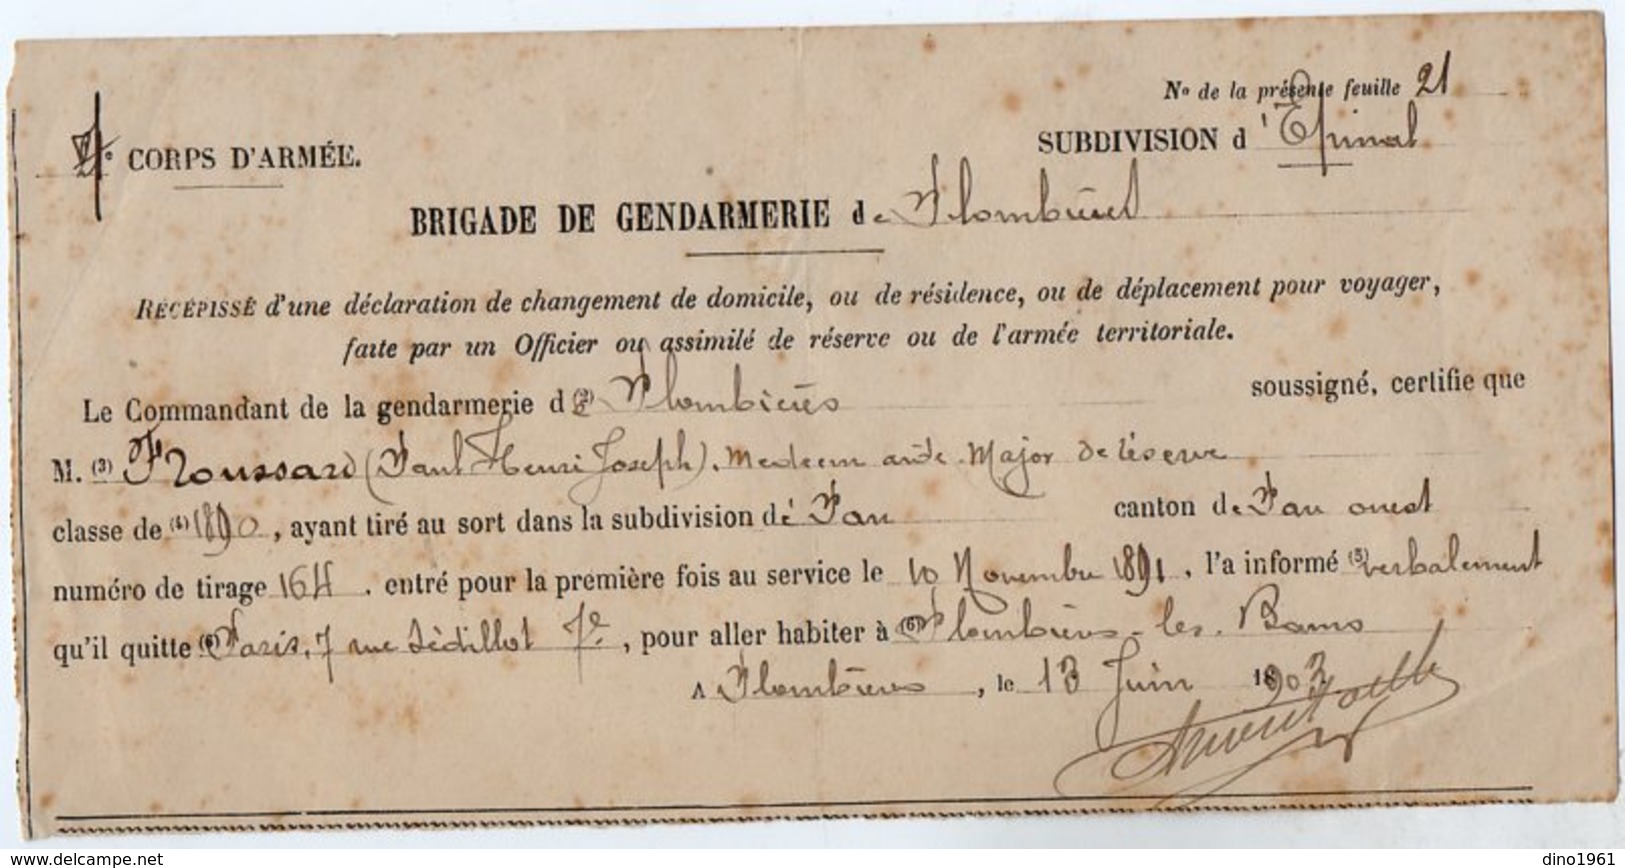 No de la présente feuille 21
CORPS D'ARMÉE. SUBDIVISION d'Epinal
BRIGADE DE GENDARMERIE de Plombières
RÉCÉPISSÉ d'une déclaration de changement de domicile, ou de résidence, ou de déplacement pour voyager,
faite par un Officier ou assimilé de réserve ou de l'armée territoriale.
Le Commandant de la gendarmerie de (2) Plombières soussigné, certifie que
M. (3) Froussard (Paul Henri Joseph). Medecin aide-Major de réserve
classe de (4) 1890, ayant tiré au sort dans la subdivision de Pau canton de Pau ouest
numéro de tirage 164. entré pour la première fois au service le 10 Novembre 1891, l'a informé (5) verbalement
qu'il quitte (6) Paris, 7 rue Sédillot 7e, pour aller habiter à (6) Plombières-les-Bains
A Plombières, le 13 Juin 1903
delcampe.net
dino1961